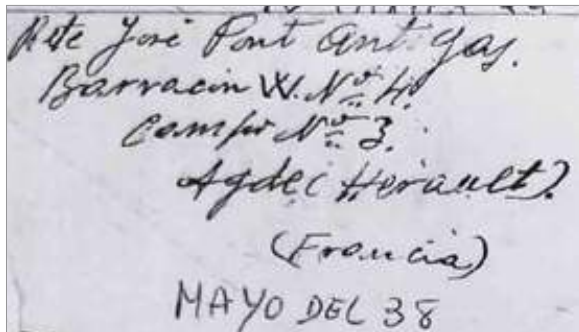 Rte José Pont Antigas.
Barracón W. Nº 4.
Campo Nº 3.
Agde (Herault).
(Francia)
MAYO DEL 38